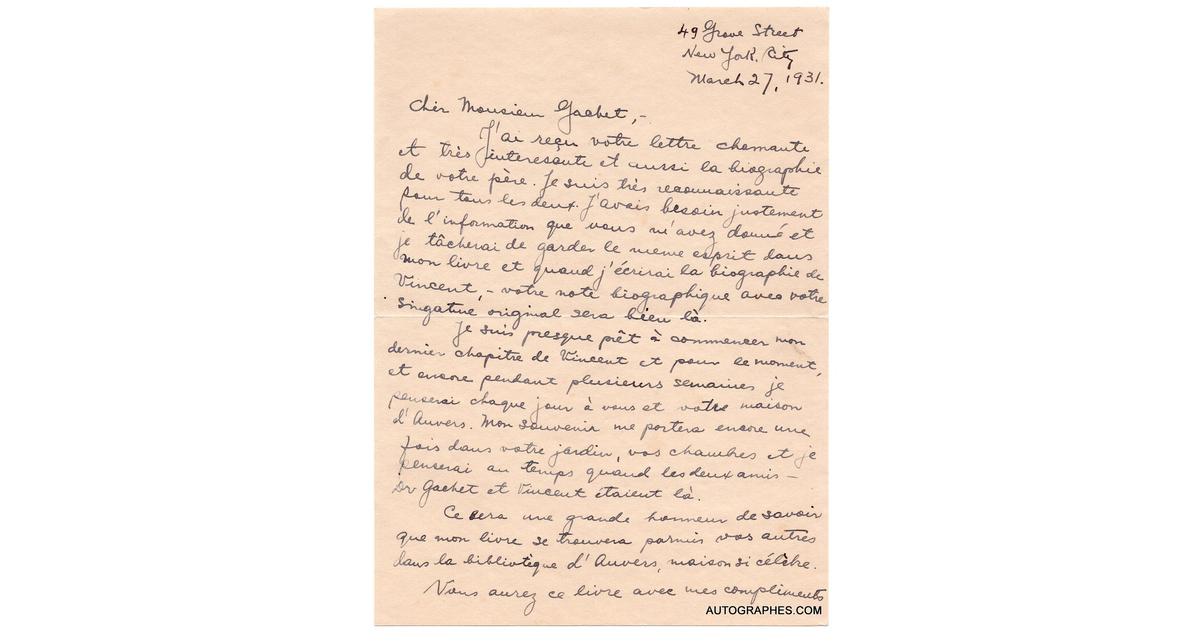 49 Grove Street
New York City
March 27, 1931.
Cher Monsieur Gachet, -
J'ai reçu votre lettre chamante
et très interesante et aussi la biographie
de votre père. Je suis très reconnaissante
pour tous les deux. J'avais besoin justement
de l'information que vous m'avez donné et
je tâcherai de garder le meme esprit dans
mon livre et quand j'écrirai la biographie de
Vincent, - votre note biographique avec votre
singature original sera bien là.
Je suis presque prêt à commencer mon
dernier chapitre de Vincent et pour le moment,
et encore pendant plusieurs semaines je
penserai chaque jour à vous et votre maison
d'Auvers. Mon souvenir me portera encore une
fois dans votre jardin, vos chambres et je
penserai au temps quand les deux amis -
Dr Gachet et Vincent étaient là.
Ce sera une grande honneur de savoir
que mon livre se trouvera parmis vos autres
dans la bibliotèque d'Auvers, maison si célèbre.
Vous aurez ce livre avec mes compliments
AUTOGRAPHES.COM